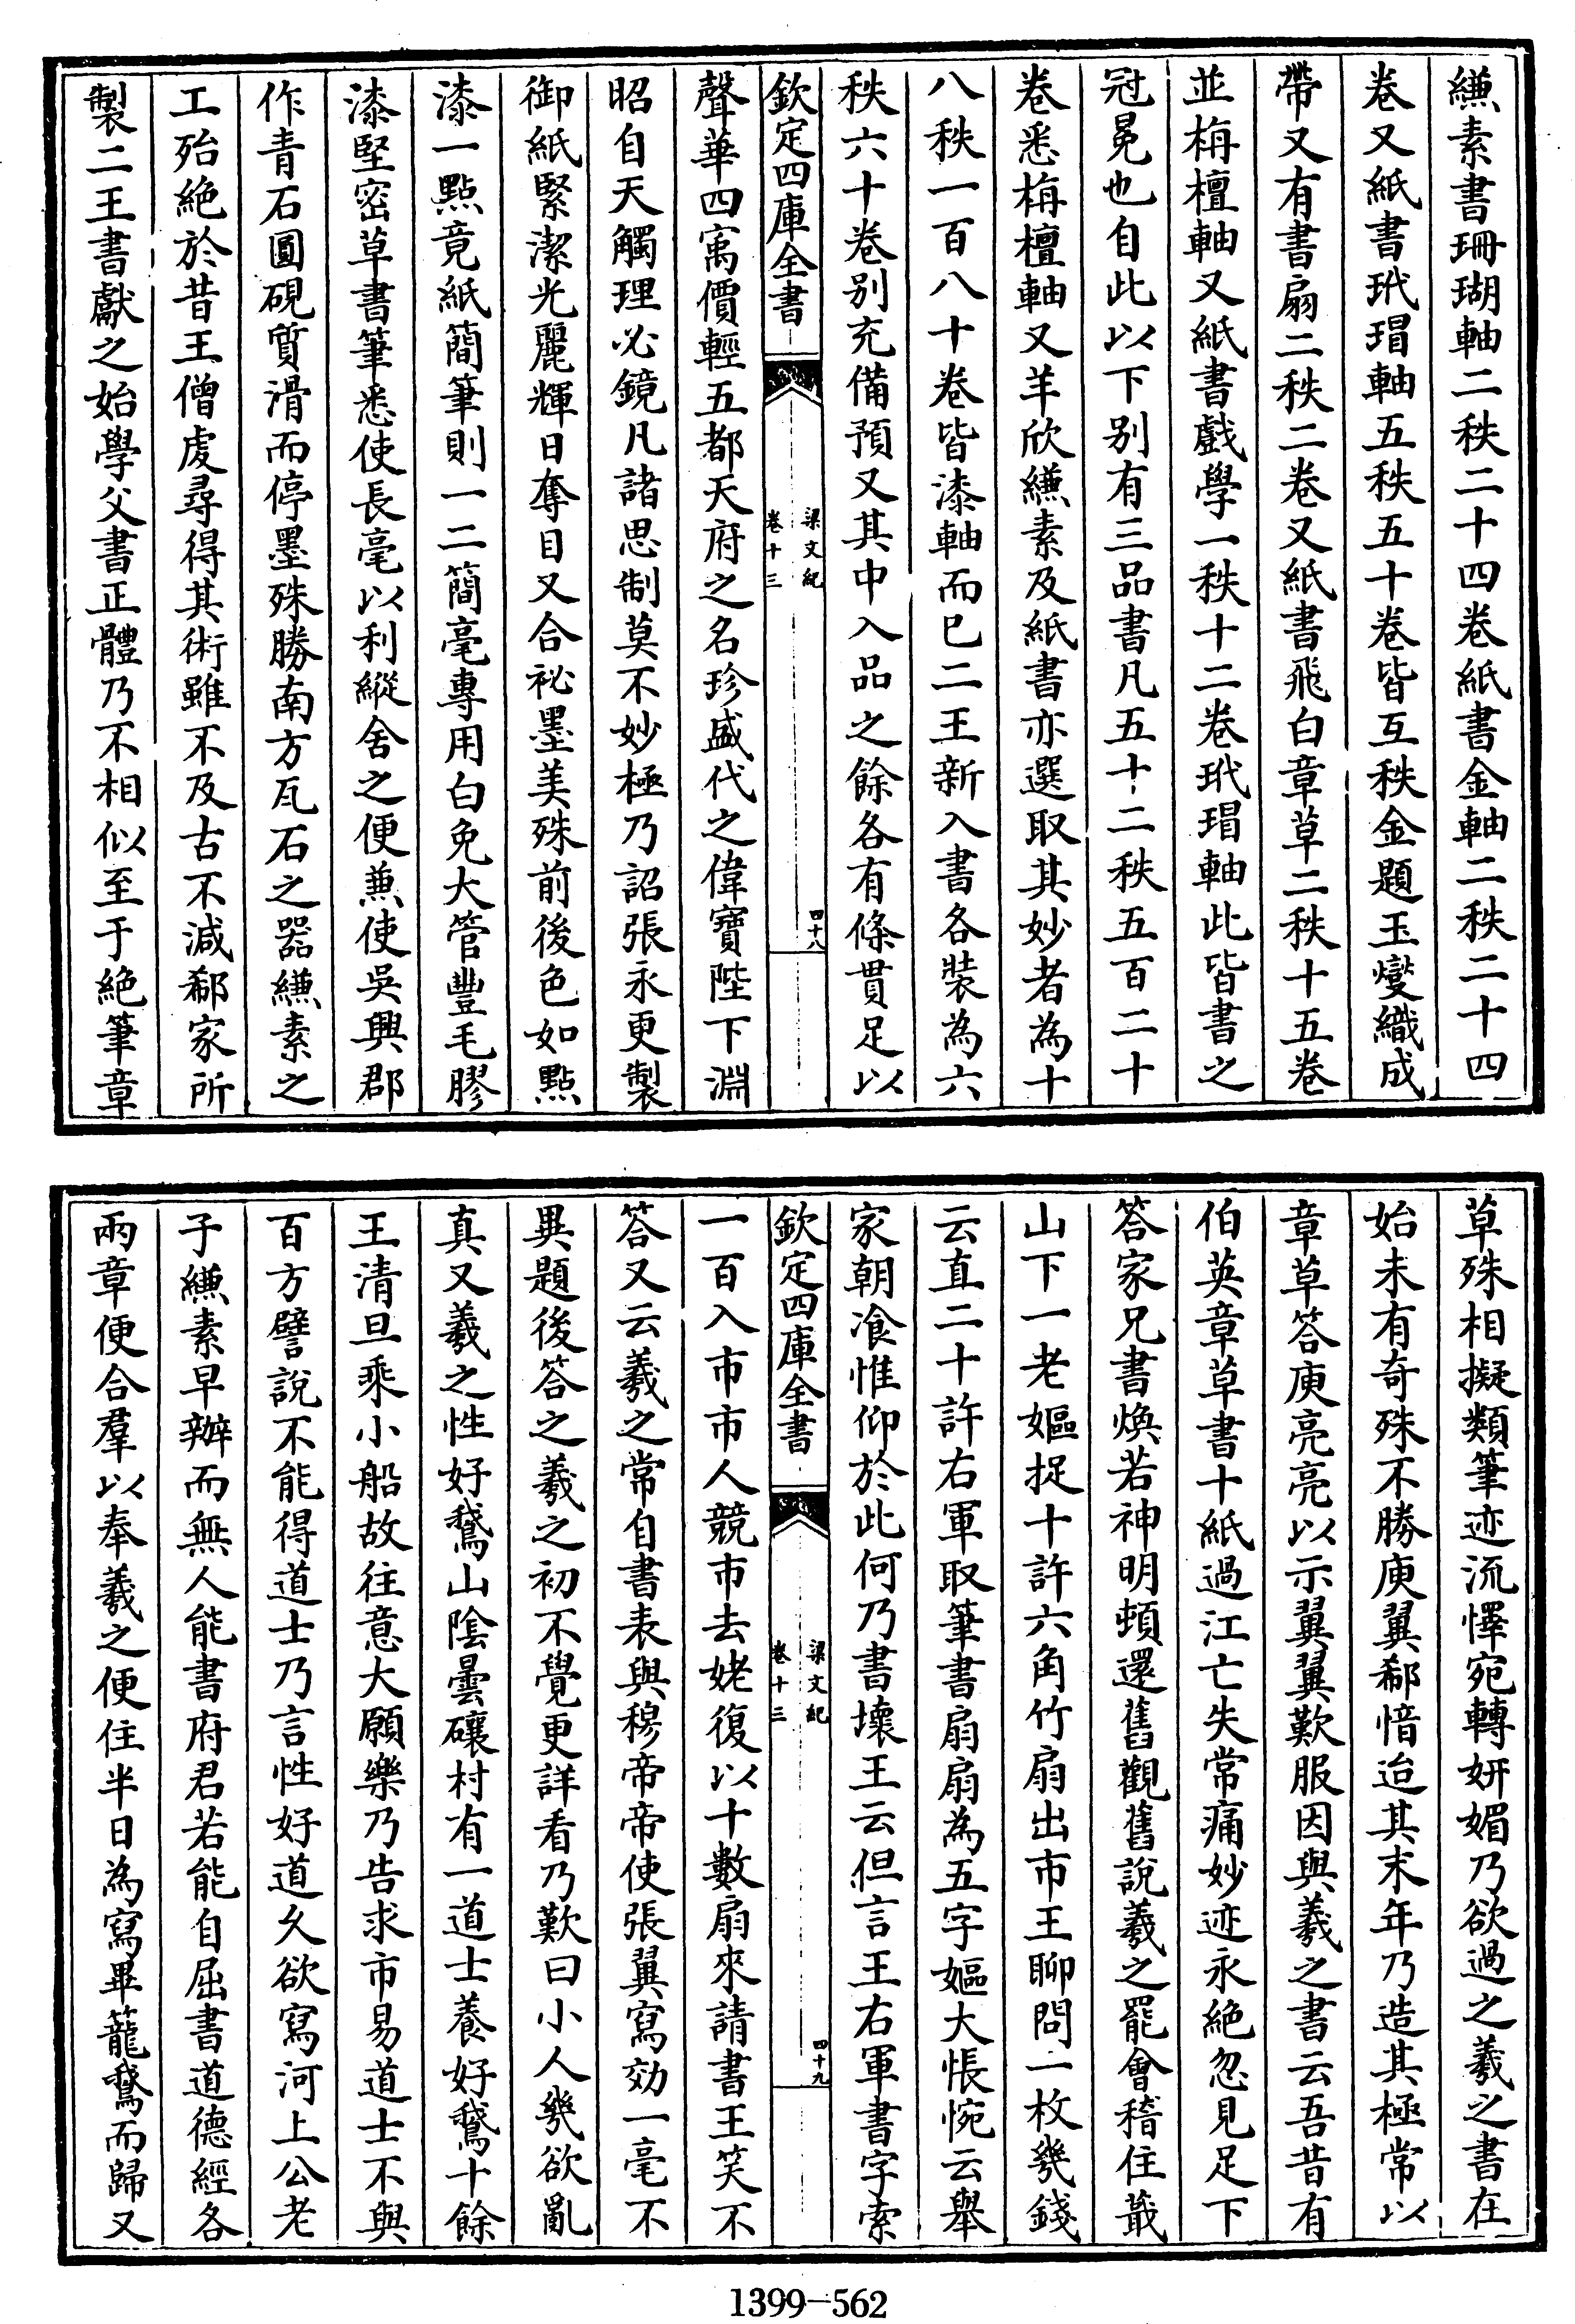 縑素書珊瑚軸二秩二十四卷紙書金軸二秩二十四
卷又紙書玳瑁軸五秩五十卷皆互秩金題玉燮織成
帶又有書扇二秩二卷又紙書飛白章草二秩十五卷
並栴檀軸又紙書戲學一秩十二卷玳瑁軸此皆書之
冠冕也自此以下别有三品書凡五十二秩五百二十
卷悉栴檀軸又羊欣縑素及紙書亦選取其妙者為十
八秩一百八十卷皆漆軸而已二王新入書各裝為六
秩六十卷别充備預又其中入品之餘各有條貫足以
欽定四庫全書
梁文紀
卷十三
四十八
聲華四㝢價輕五都天府之名珍盛代之偉寶陛下淵
昭自天觸理必鏡凡諸思制莫不妙極乃詔張永更製
御紙緊潔光麗輝日奪目又合祕墨美殊前後色如點
漆一點竟紙簡筆則一二簡毫專用白兔大管豐毛膠
漆堅密草書筆悉使長毫以利縱舍之便兼使吳興郡
作青石圓硯質滑而停墨殊勝南方瓦石之器縑素之
工殆絶於昔王僧虔尋得其術雖不及古不減郗家所
製二王書獻之始學父書正體乃不相似至于絶筆章
草殊相擬類筆迹流懌宛轉妍媚乃欲過之羲之書在
始未有奇殊不勝庾翼郗愔迨其末年乃造其極常以
章草答庾亮亮以示翼翼歎服因與羲之書云吾昔有
伯英章草書十紙過江亡失常痛妙迹永絶忽見足下
答家兄書煥若神明頓還舊觀舊說羲之罷會稽住蕺
山下一老嫗捉十許六角竹扇出市王聊問一枚幾錢
云直二十許右軍取筆書扇扇為五字嫗大悵惋云舉
家朝飡惟仰於此何乃書壞王云但言王右軍書字索
欽定四庫全書
梁文紀
卷十三
四十九
一百入市市人競市去姥復以十數扇來請書王笑不
答又云羲之常自書表與穆帝帝使張翼寫効一毫不
異題後答之羲之初不覺更詳看乃歎曰小人幾欲亂
真又羲之性好鵞山隂曇礳村有一道士養好鵞十餘
王清旦乘小船故往意大願樂乃告求市易道士不與
百方譬説不能得道士乃言性好道久欲寫河上公老
子縑素早辦而無人能書府君若能自屈書道德經各
兩章便合羣以奉羲之便住半日為寫畢籠鵞而歸又
1399-562